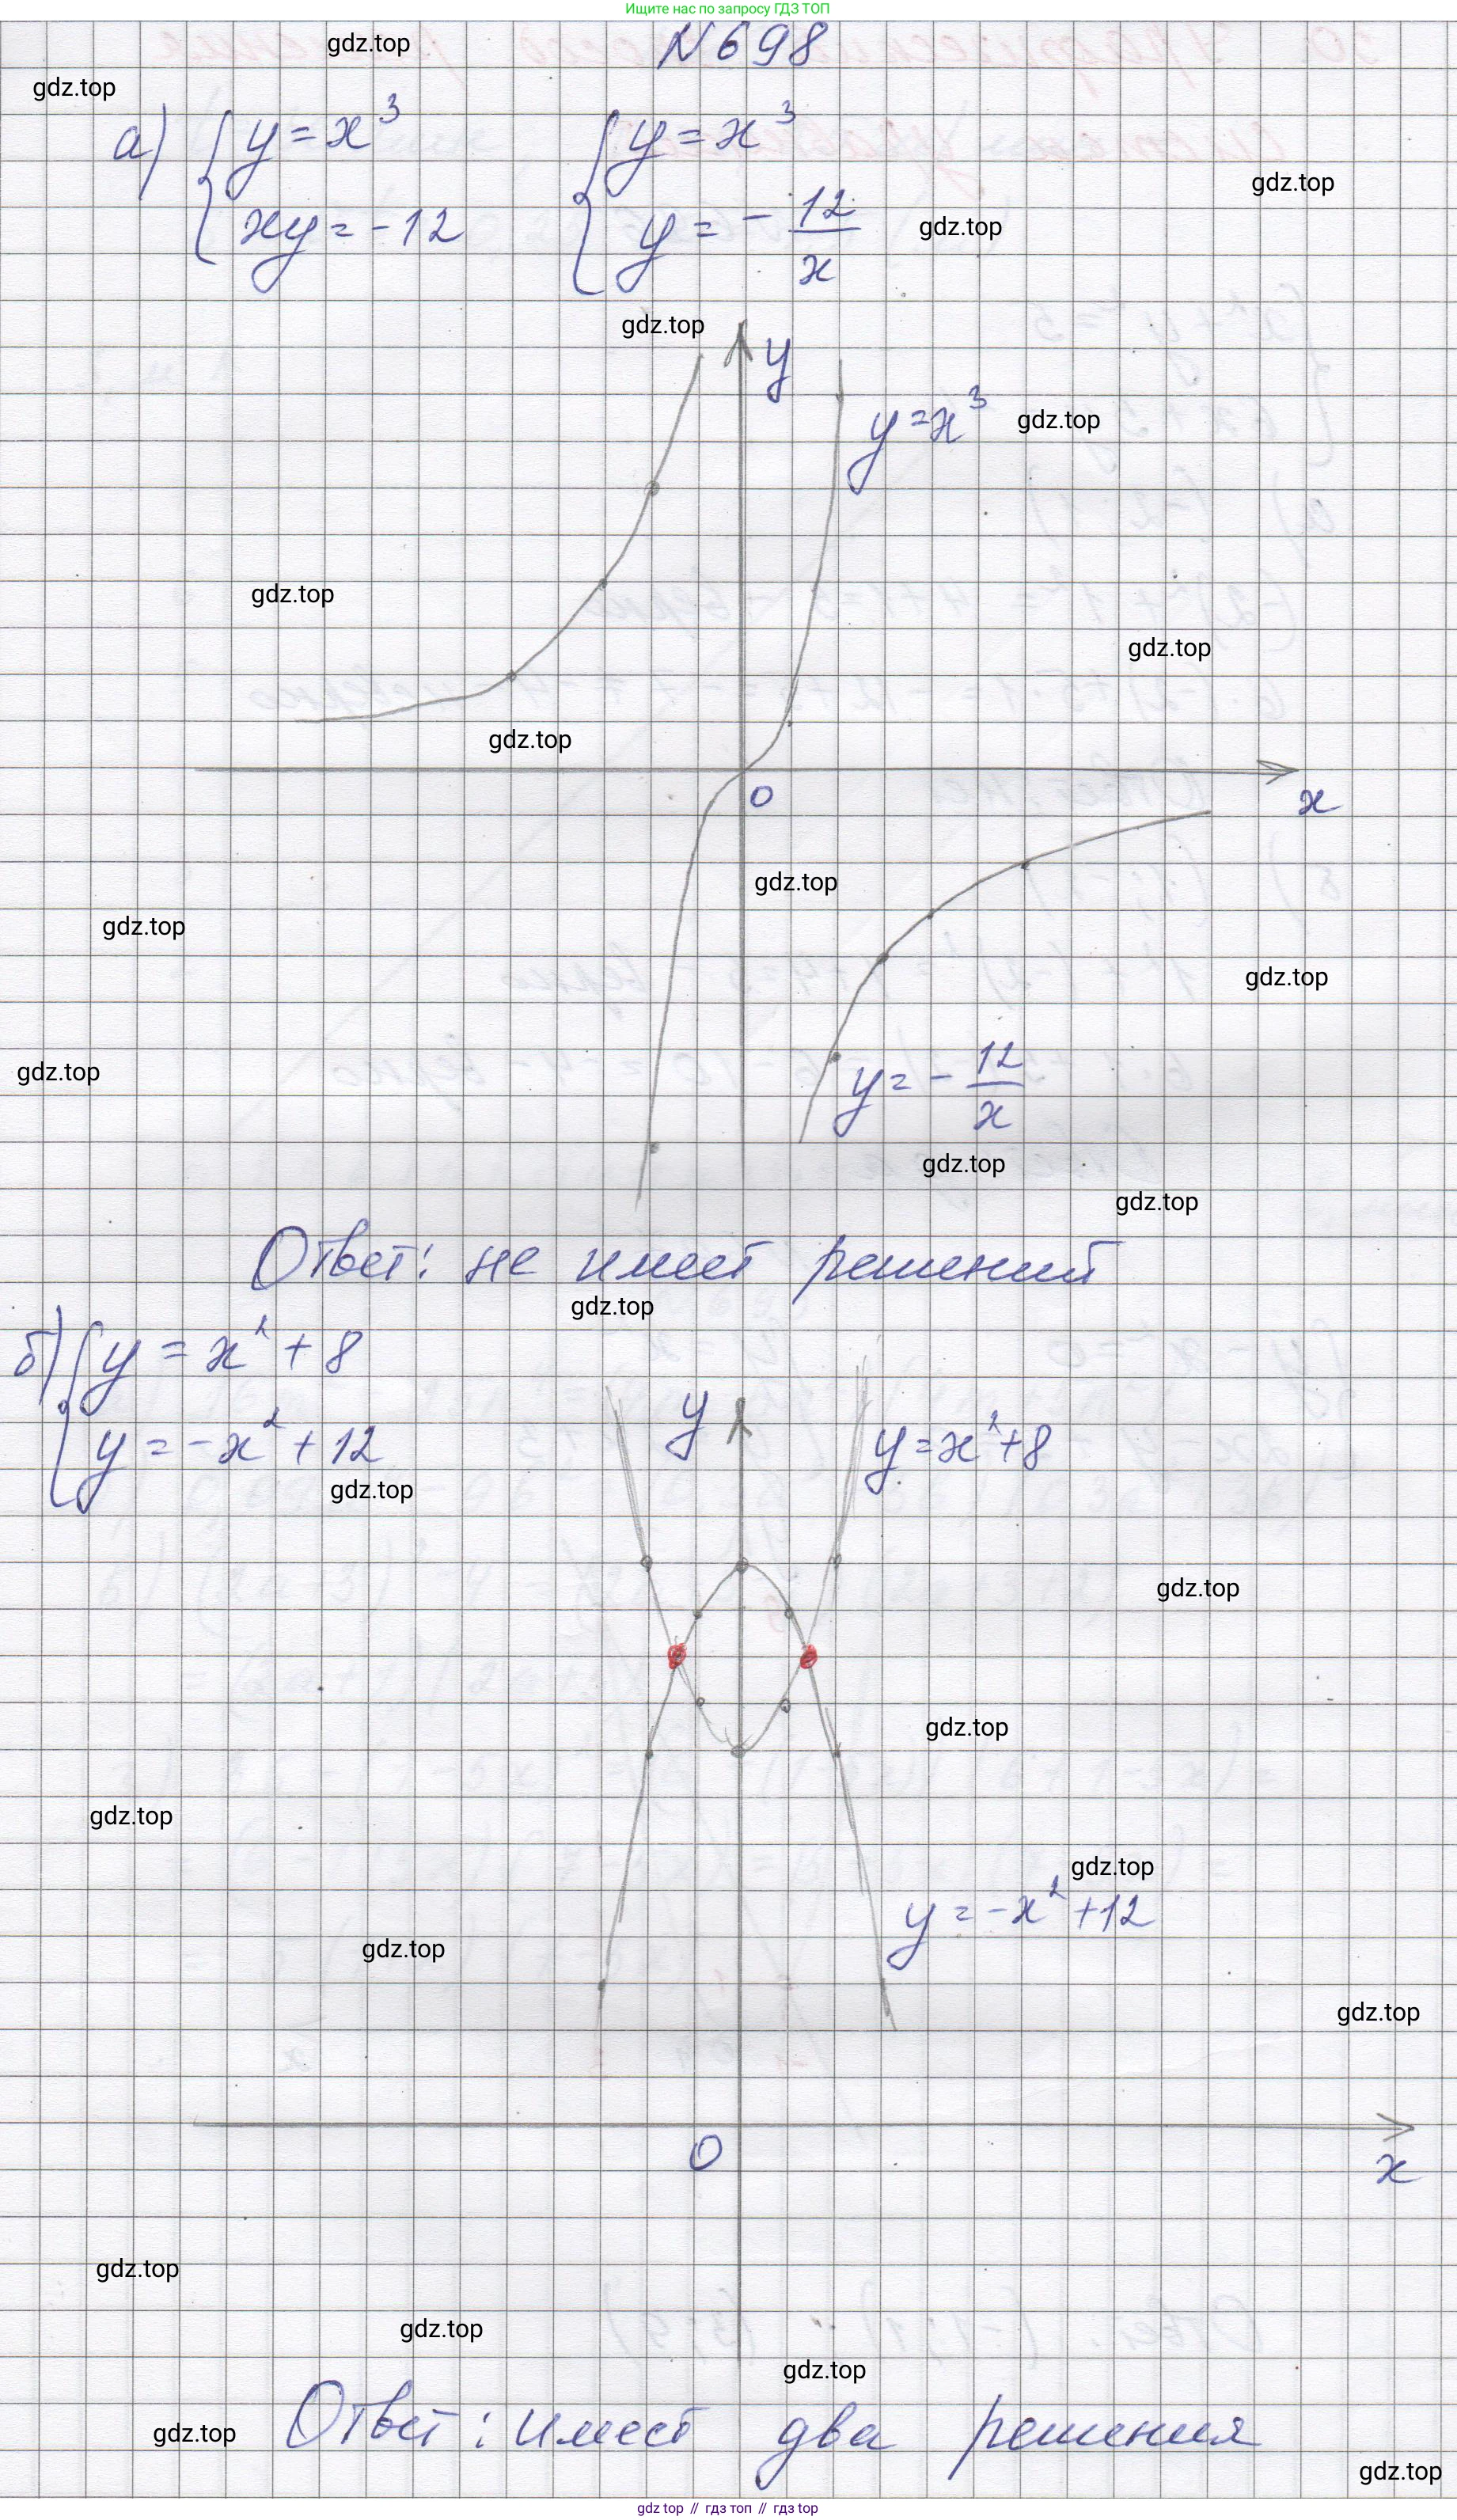 Ищите нас по запросу ГДЗ ТОП
N 698
gdz.top
gdz.top
а) { y = x³ { y = x³
gdz.top
xy = -12 y = - 12/x
gdz.top
gdz.top
y
y = x³
gdz.top
gdz.top
gdz.top
gdz.top
0
x
gdz.top
gdz.top
gdz.top
gdz.top
y = - 12/x
gdz.top
gdz.top
Ответ: не имеет решений
gdz.top
б) { y = x² + 8
y = -x² + 12
y
y = x² + 8
gdz.top
gdz.top
gdz.top
gdz.top
gdz.top
y = -x² + 12
gdz.top
gdz.top
0
x
gdz.top
gdz.top
gdz.top
Ответ: имеет два решения
gdz.top
gdz.top
gdz top // гдз топ // гдз top